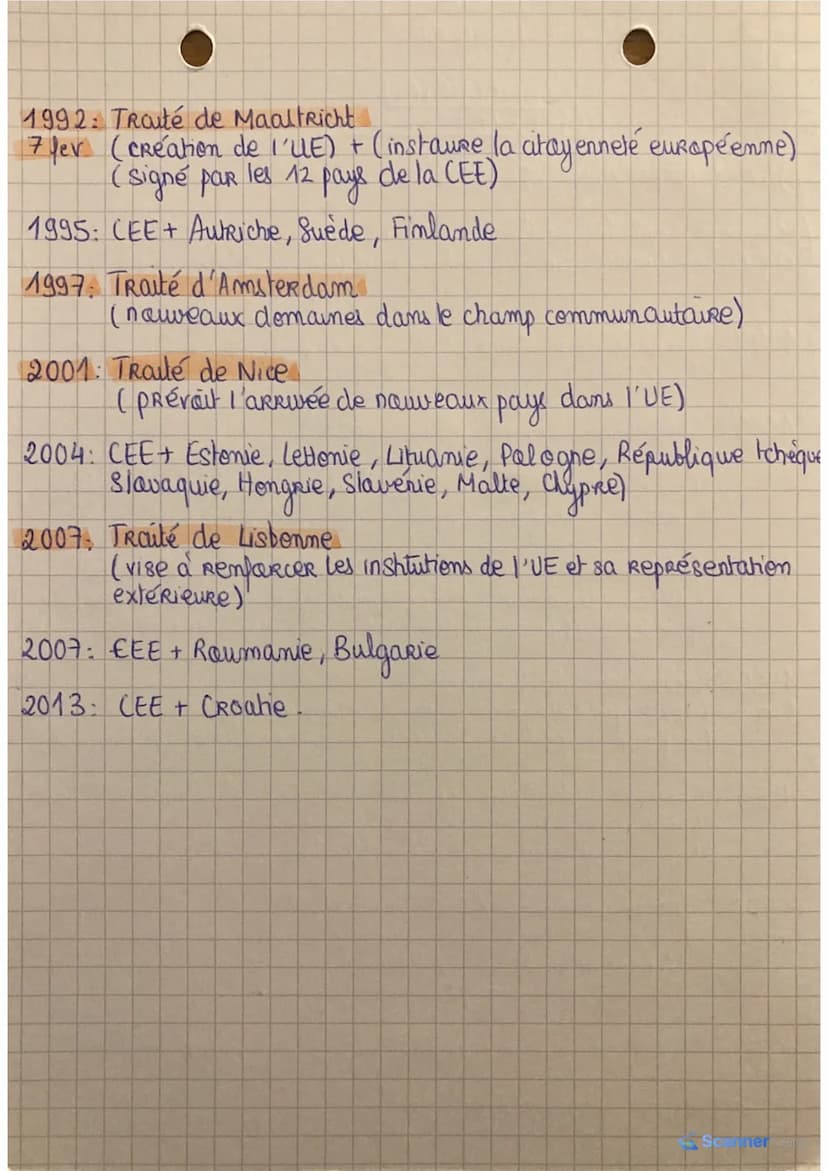 1992: Traité de Maastricht
7 fev (création de l'UE) + (instaure la citoyenneté européenne)
(signé par les 12 pays de la CEE)
1995: CEE + Autriche, Suède, Finlande
1997: Traité d'Amsterdam
(nouveaux domaines dans le champ communautaire)
2001: Traité de Nice
(prévoit l'arrivée de nouveaux pays dans l'UE)
2004: CEE + Estonie, Lettonie, Lituanie, Pologne, République tchèque
Slovaquie, Hongrie, Slovénie, Malte, Chypre)
2007: Traité de Lisbonne
(vise à renforcer les institutions de l'UE et sa représentation
extérieure)
2007: CEE + Roumanie, Bulgarie
2013: CEE + Croatie.
Scanner